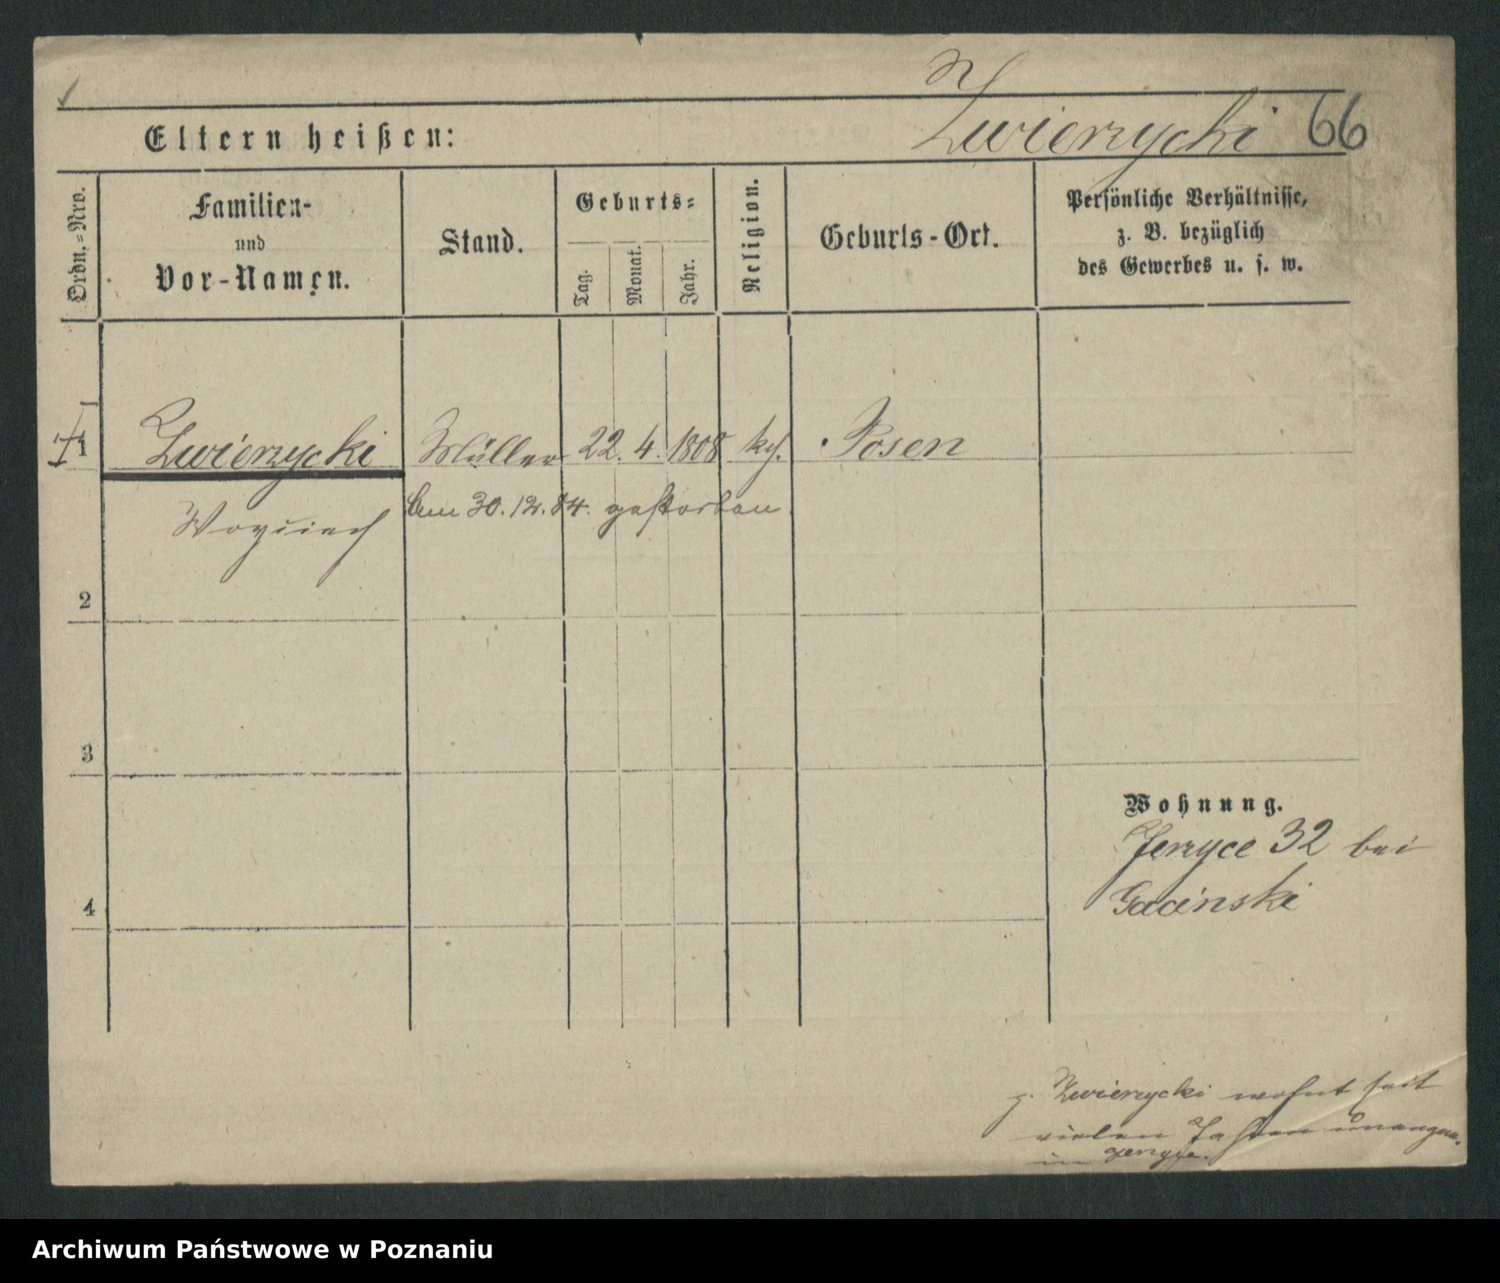 Zwierzycki 66
Eltern heißen:
Ordn.=Nro.
Familien-
und
Vor-Namen.
Stand.
Geburts=
Tag.
Monat.
Jahr.
Religion.
Geburts-Ort.
Persönliche Verhältnisse,
z. B. bezüglich
des Gewerbes u. s. w.
1 Zwierzycki Müller 22. 4. 1808 kg. Posen
Woyciech am 30.12.84. gestorben.
2
3
4
Wohnung.
Jerzyce 32 bei
Gacinski
Zwierzycki wohnt seit
vielen Jahren
in Jerzyce.
Archiwum Państwowe w Poznaniu